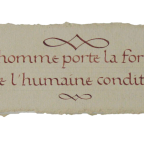 homme porte la for
e l'humaine condit